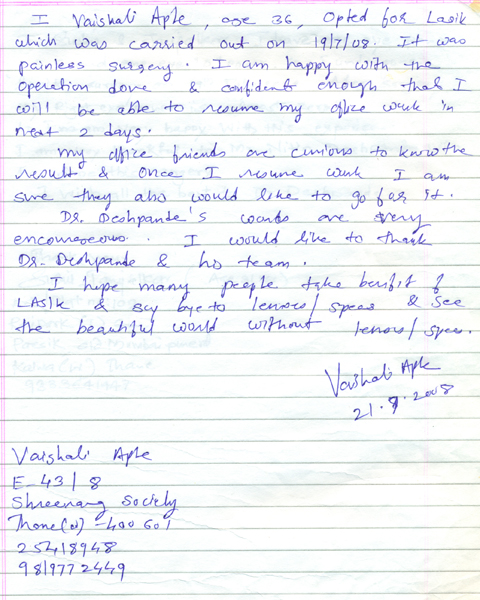 I Vaishali Apte, age 36, Opted for Lasik
which was carried out on 19/7/08. It was
painless surgery. I am happy with the
operation done & confident enough that I
will be able to resume my office work in
next 2 days.
My office friends are curious to know the
result & once I resume work I am
sure they also would like to go for it.
Dr. Deshpande's words are very
I would like to thank
Dr. Deshpande & his team.
I hope many people take benifit of
LASIK & say bye to lenses/specs & see
the beautiful world without lenses/specs.
Vaishali Apte
21.7.2008
Vaishali Apte
E-43/8
Shreerang Society
Thane(w)-400 601
25418948
9819772449